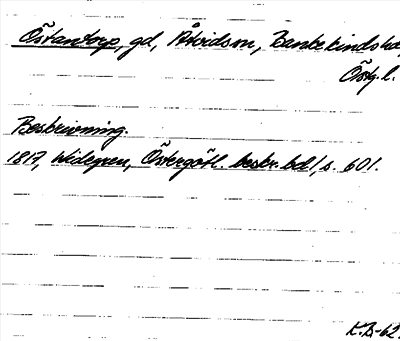 Östantorp, gd, Åtvidsn, Bankekindshd,
Östg.l.
Beskrivning.
1817, Widegren, Östergötl. beskr. bd 1, s. 601.
K.D-62.